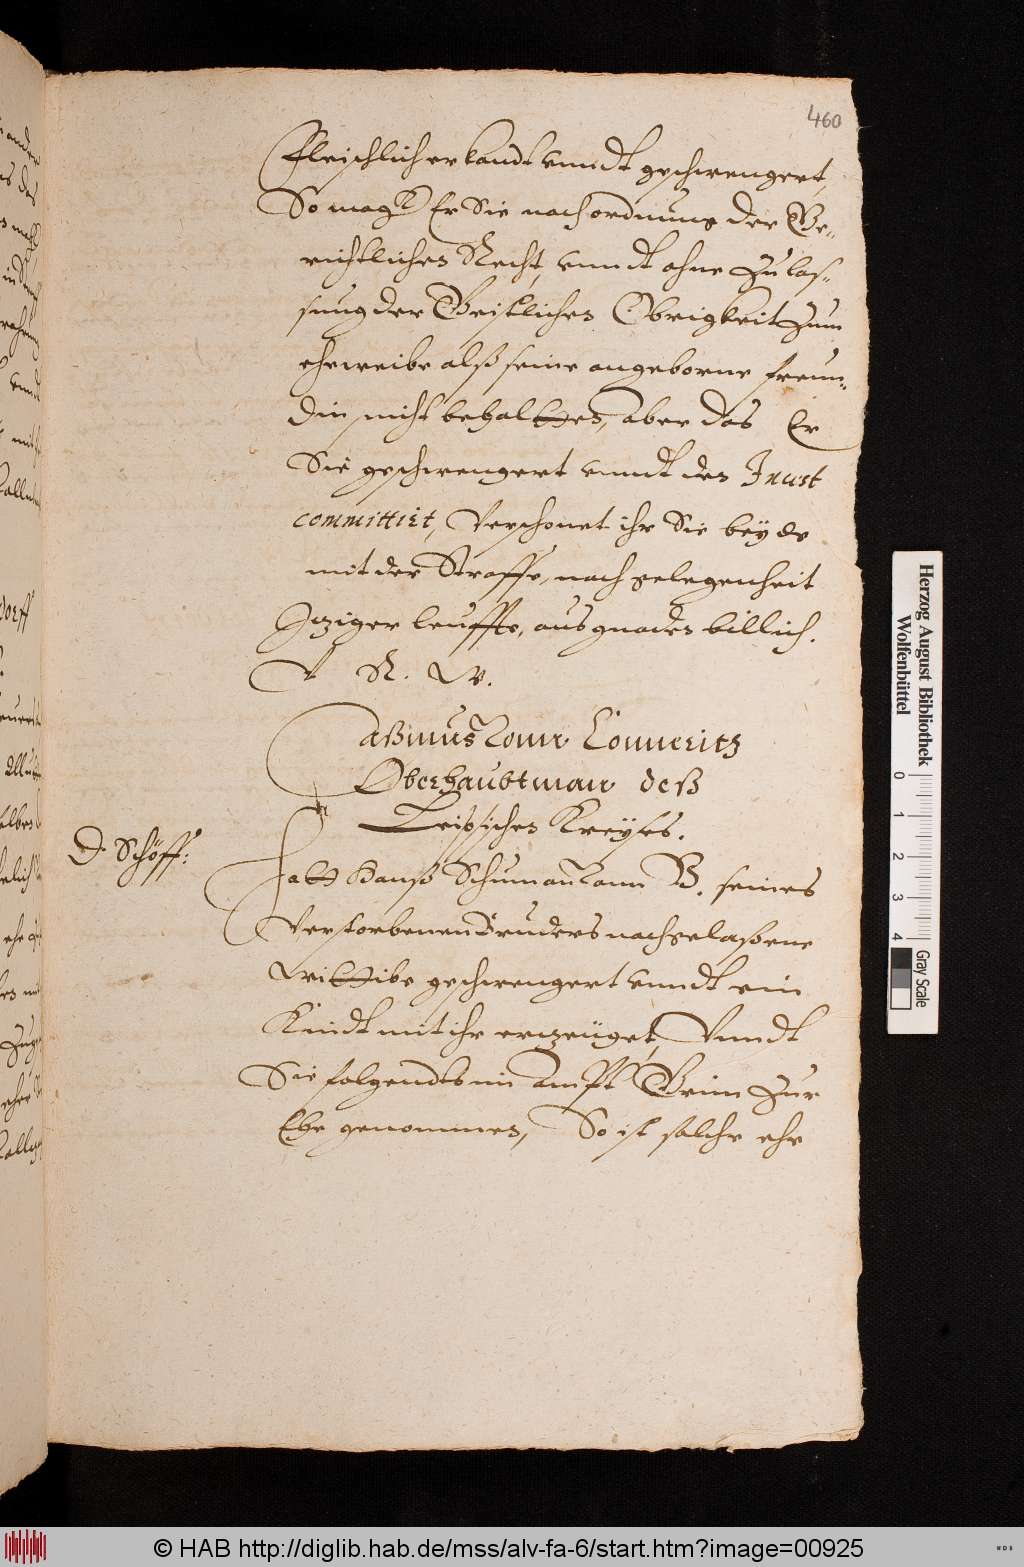 460
Fleischlich erkandt vnndt geschwengert,
So magk Er Sie nach ordnung der Ge-
richtlichen Recht, vnndt ohne Zulas-
sung der Geistlichen Obrigkeit zum
eheweibe alß seine angeborne freun-
din nicht behaltten, aber das Er
Sie geschwengert vnndt den Incest
committirt, Verschonet ihr Sie beyde
mit der Straffe, nach gelegenheit
Iziger leuffte, aus gnaden billich.
V R. W.
Caßmus Vonn Conneritz
Oberhaubtman deß
Leipsischen Kreyses.
D. Schöff:
Hatt Hanß Schuman Vonn B. seines
Verstorbenen Bruders nachgelaßene
Wittibe geschwengert vnndt ein
Kindt mit ihr erzeüget, Vnndt
Sie folgendts im Ampt Grim zur
Ehe genommen, So ist solche ehe
Herzog August Bibliothek
Wolfenbüttel
0 1 2 3 4
Gray Scale
© HAB http://diglib.hab.de/mss/alv-fa-6/start.htm?image=00925